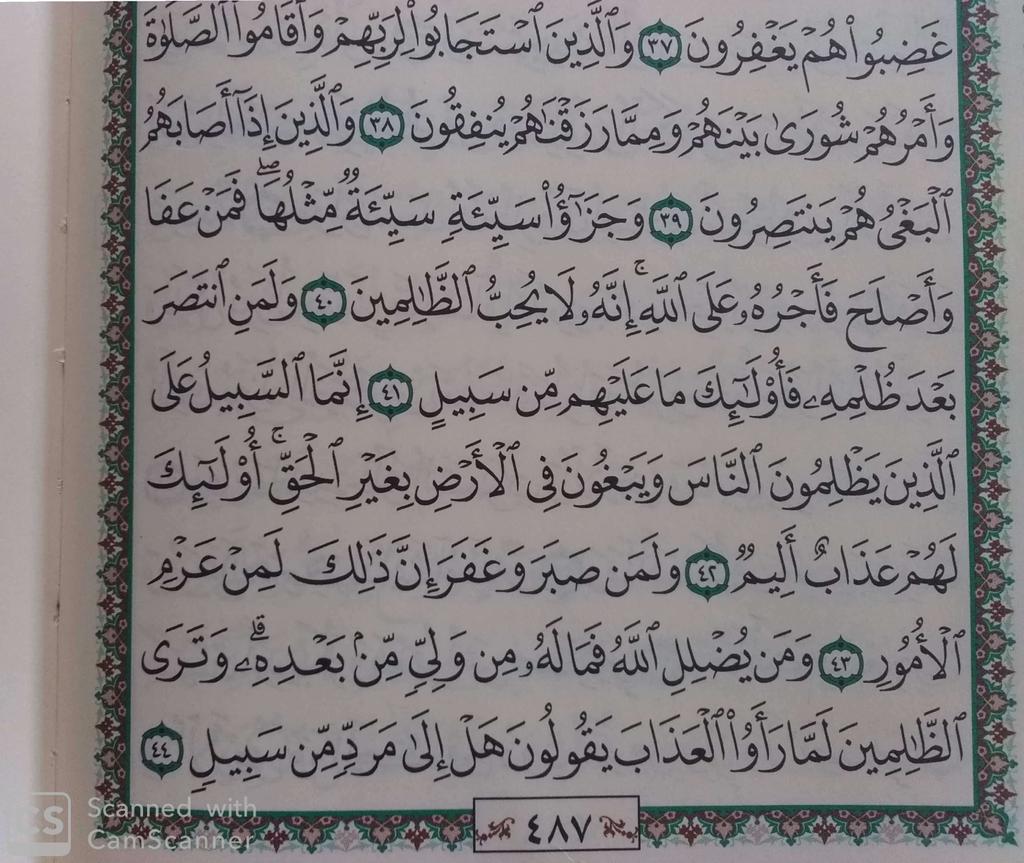 غَضِبُوا۟ هُمْ يَغْفِرُونَ ٣٧ وَٱلَّذِينَ ٱسْتَجَابُوا۟ لِرَبِّهِمْ وَأَقَامُوا۟ ٱلصَّلَوٰةَ
وَأَمْرُهُمْ شُورَىٰ بَيْنَهُمْ وَمِمَّا رَزَقْنَٰهُمْ يُنفِقُونَ ٣٨ وَٱلَّذِينَ إِذَآ أَصَابَهُمُ
ٱلْبَغْىُ هُمْ يَنتَصِرُونَ ٣٩ وَجَزَٰٓؤُا۟ سَيِّئَةٍ سَيِّئَةٌ مِّثْلُهَا ۖ فَمَنْ عَفَا
وَأَصْلَحَ فَأَجْرُهُۥ عَلَى ٱللَّهِ ۚ إِنَّهُۥ لَا يُحِبُّ ٱلظَّٰلِمِينَ ٤٠ وَلَمَنِ ٱنتَصَرَ
بَعْدَ ظُلْمِهِۦ فَأُو۟لَٰٓئِكَ مَا عَلَيْهِم مِّن سَبِيلٍ ٤١ إِنَّمَا ٱلسَّبِيلُ عَلَى
ٱلَّذِينَ يَظْلِمُونَ ٱلنَّاسَ وَيَبْغُونَ فِى ٱلْأَرْضِ بِغَيْرِ ٱلْحَقِّ ۚ أُو۟لَٰٓئِكَ
لَهُمْ عَذَابٌ أَلِيمٌ ٤٢ وَلَمَن صَبَرَ وَغَفَرَ إِنَّ ذَٰلِكَ لَمِنْ عَزْمِ
ٱلْأُمُورِ ٤٣ وَمَن يُضْلِلِ ٱللَّهُ فَمَا لَهُۥ مِن وَلِىٍّ مِّنۢ بَعْدِهِۦ ۗ وَتَرَى
ٱلظَّٰلِمِينَ لَمَّا رَأَوُا۟ ٱلْعَذَابَ يَقُولُونَ هَلْ إِلَىٰ مَرَدٍّ مِّن سَبِيلٍ ٤٤
٤٨٧
CS Scanned with
CamScanner